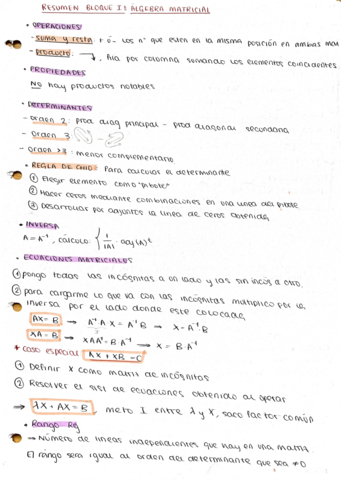 RESUMEN BLOQUE I: ÁLGEBRA MATRICIAL
• OPERACIONES
- suma y resta: + o - los nº que esten en la misma posición en ambas
- producto: → ↓, fila por columna sumando los elementos coincidentes
• PROPIEDADES
NO hay productos notables
• DETERMINANTES
- orden 2: prod diag principal - prod diagonal secundaria
- orden 3
- orden >3: menos complementario
• REGLA DE CHIO: Para calcular el determinante
① Elegir elemento como "pibote"
② Hacer ceros mediante combinaciones en una linea del pibote
③ Desarrollar por adjuntos la linea de ceros obtenida
• INVERSA
A = A⁻¹, cálculo: { 1/|A| · adj(A)ᵗ
• ECUACIONES MATRICIALES
① pongo todas las incógnitas a un lado y las sin incog a otro.
② para cargarme lo que va con las incógnitas multiplico por la
inversa por el lado donde este colocada,
AX = B → A⁻¹ A X = A⁻¹ B → X = A⁻¹ B
XA = B → X A A⁻¹ = B A⁻¹ → X = B · A⁻¹
* caso especial AX + XB = C
① Definir X como matriz de incógnitas
② Resolver el sist de ecuaciones obtenido al operar
→ λX + AX = B, meto I entre λ y X, saco factor común
• Rango Rg
→ Número de lineas independientes que hay en una matriz
El rango sera igual al orden del determinante que sea ≠ 0